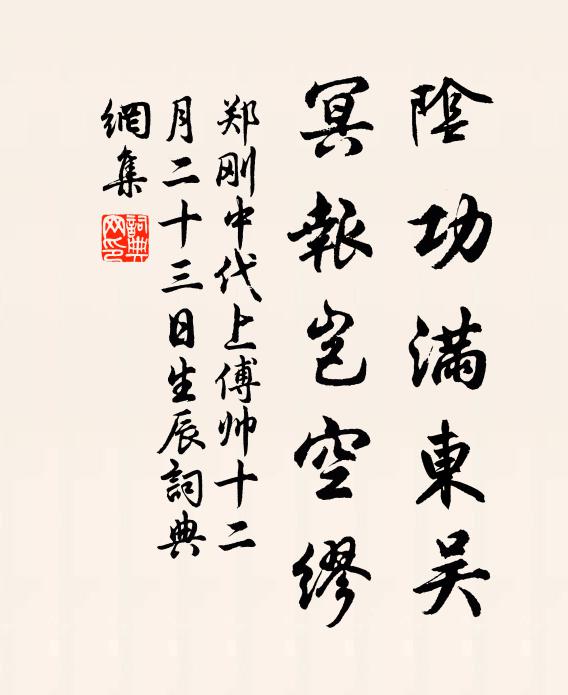 陰功滿東吴
冥報豈空缪
郑刚中代上傅帅十二
月二十三日生辰詞典
網集
詞典网印